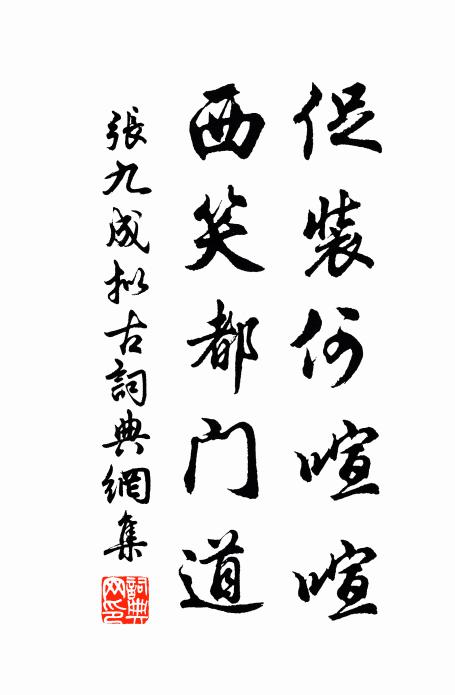 促裝何喧喧
西笑都门道
張九成拟古詞典網集
詞典網印